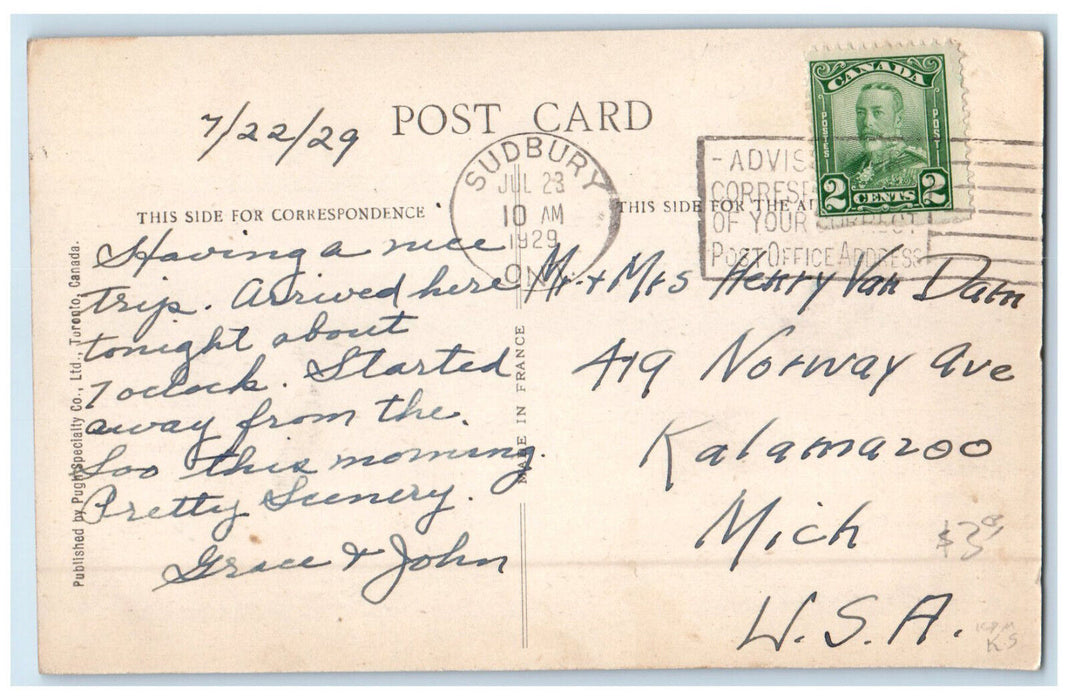 7/22/29
POST CARD
CANADA
POSTES
POST
2 CENTS 2
SUDBURY
JUL 23
10 AM
1929
ONT.
-ADVIS
CORRESP
OF YOUR CORRECT
POST OFFICE ADDRESS
THIS SIDE FOR CORRESPONDENCE
THIS SIDE FOR THE AD
Having a nice
trip. Arrived here
tonight about
7 oclock. Started
away from the
Soo this morning.
Pretty Scenery.
Grace & John
Mr. + Mrs Henry Van Dam
419 Norway Ave
Kalamazoo
Mich
U.S.A.
MADE IN FRANCE
Published by Pugh Specialty Co., Ltd., Toronto, Canada.
$3
K.S